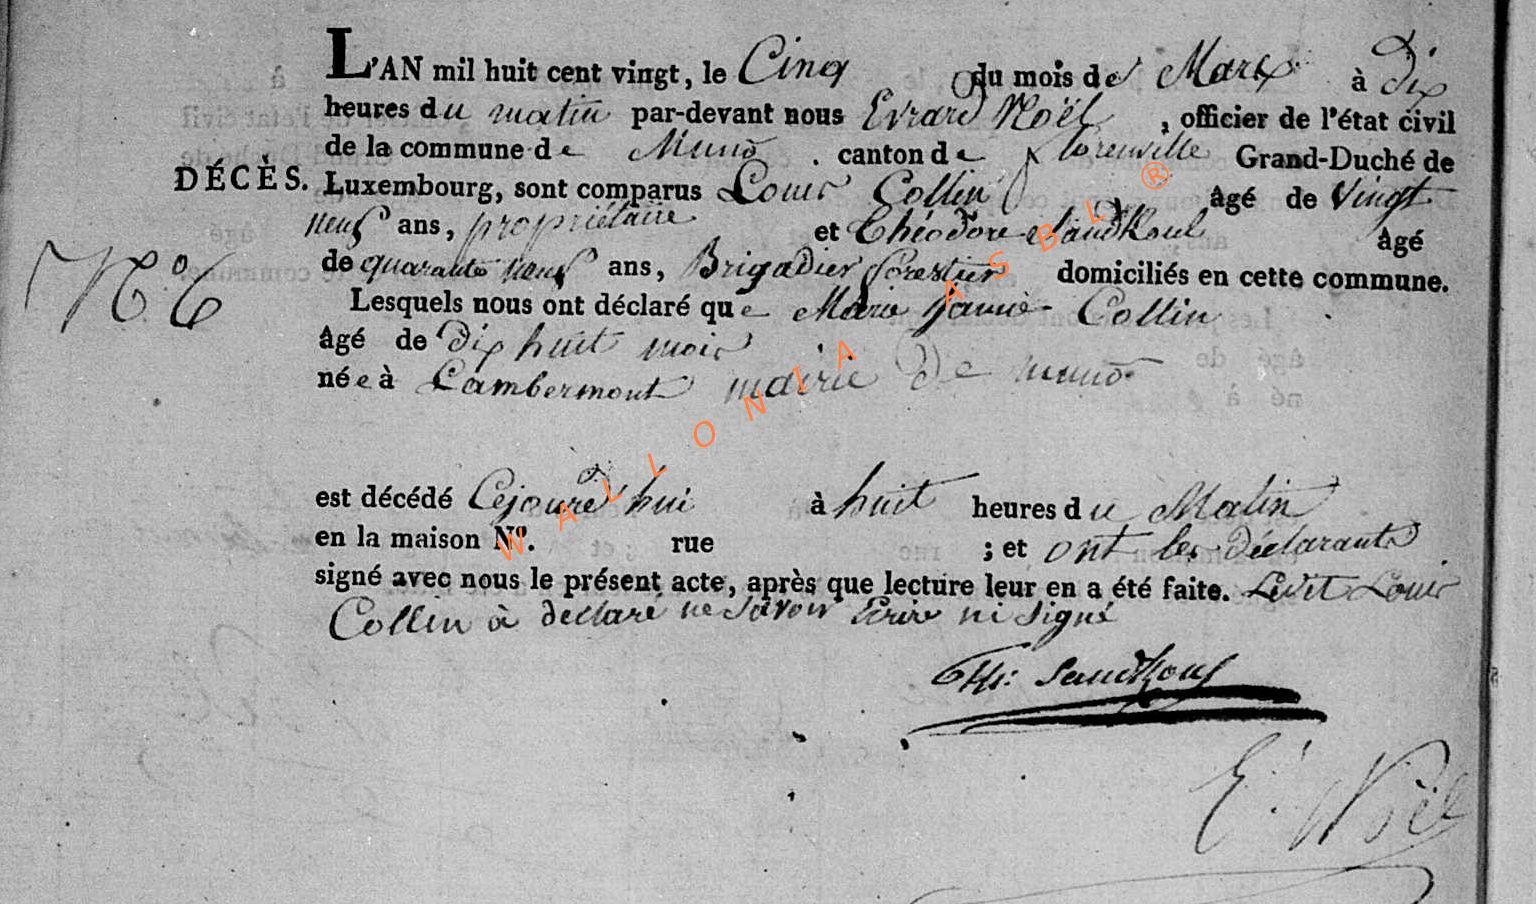 L'AN mil huit cent vingt, le Cinq du mois de Mars à Dix
heures du matin par-devant nous Evrard Noël, officier de l'état civil
de la commune de Muno. canton de florenville Grand-Duché de
DÉCÈS. Luxembourg, sont comparus Louis Collin âgé de Vingt
neuf ans, propriétaire et Théodore Sandkoul âgé
N.º 6 de quarante neuf ans, Brigadier forestier domiciliés en cette commune.
Lesquels nous ont déclaré que Marie Jeanne Collin
âgé de Dix huit mois
née à Lambermont mairie De muno
est décédé Cejourd'hui à huit heures du Matin
en la maison Nº. rue ; et ont les Déclarants
signé avec nous le présent acte, après que lecture leur en a été faite. Ledit Louis
Collin à déclaré ne Savoir Ecrire ni Signé
Th:
E. Noël
WALLONIA ASBL ®